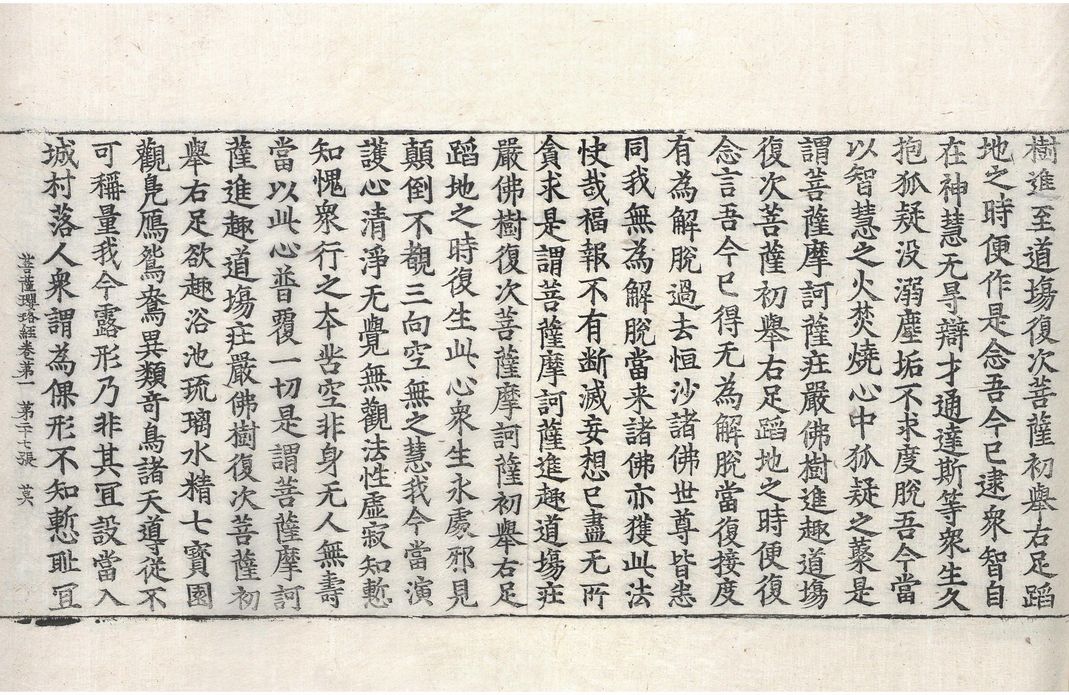 樹進至道塲復次菩薩初舉右足蹈
地之時便作是念吾今已逮衆智自
在神慧无㝵辯才通達斯等衆生久
抱狐疑没溺塵垢不求度脫吾今當
以智慧之火焚燒心中狐疑之蘂是
謂菩薩摩訶薩㽵嚴佛樹進趣道塲
復次菩薩初舉右足蹈地之時便復
念言吾今已得无為解脫當復接度
有為解脫過去恒沙諸佛世尊皆悉
同我無為解脫當来諸佛亦獲此法
快哉福報不有断滅妄想已盡无所
貪求是謂菩薩摩訶薩進趣道塲㽵
嚴佛樹復次菩薩摩訶薩初舉右足
蹈地之時復生此心衆生永處邪見
顛倒不覩三向空無之慧我今當演
護心清淨无覺無觀法性虛寂知慙
知愧衆行之夲苦空非身无人無壽
當以此心普覆一切是謂菩薩摩訶
薩進趣道塲㽵嚴佛樹復次菩薩初
舉右足欲趣浴池琉璃水精七寳園
觀鳧鴈鴛鴦異類奇鳥諸天導從不
可稱量我今露形乃非其冝設當入
城村落人衆謂為倮形不知慙耻冝
菩薩瓔珞經卷第一 第二十七張 莫